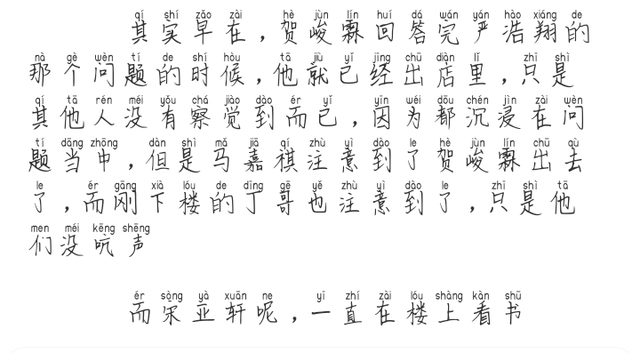 qí shí zǎo zài hè jùn lín huí dá wán yán hào xiáng de
其实早在，贺峻霖回答完严浩翔的
nà gè wèn tí de shí hòu tā jiù yǐ jīng chū diàn lǐ zhǐ shì
那个问题的时候，他就已经出店里，只是
qí tā rén méi yǒu chá jiào dào ér yǐ yīn wéi dōu chén jìn zài wèn
其他人没有察觉到而已，因为都沉浸在问
tí dāng zhōng dàn shì mǎ jiā qí zhù yì dào le hè jùn lín chū qù
题当中，但是马嘉祺注意到了贺峻霖出去
le ér gāng xià lóu de dīng gē yě zhù yì dào le zhǐ shì tā
了，而刚下楼的丁哥也注意到了，只是他
men méi kēng shēng
们没吭声
ér sòng yà xuān ne yī zhí zài lóu shàng kàn shū
而宋亚轩呢，一直在楼上看书